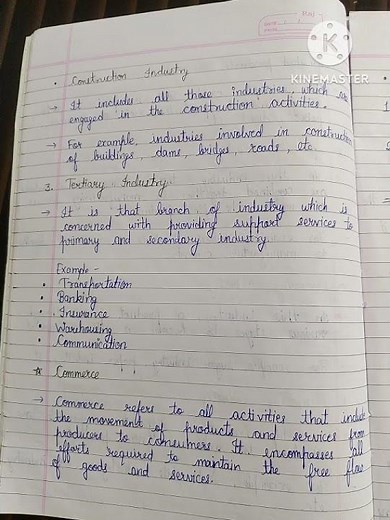 KINEMASTER
• Construction Industry
→ It includes all those industries which are
engaged in the construction activities.
→ For example, industries involved in construction
of buildings, dams, bridges, roads, etc.
3. Tertiary Industry
→ It is that branch of industry which is
concerned with providing support services to
primary and secondary industry.
Example -
• Transportation
• Banking
• Insurance
• Warhousing
• Communication
☆ Commerce
→ Commerce refers to all activities that include
the movement of products and services from
producers to consumers. It encompasses all
efforts required to maintain the free flow
of goods and services.